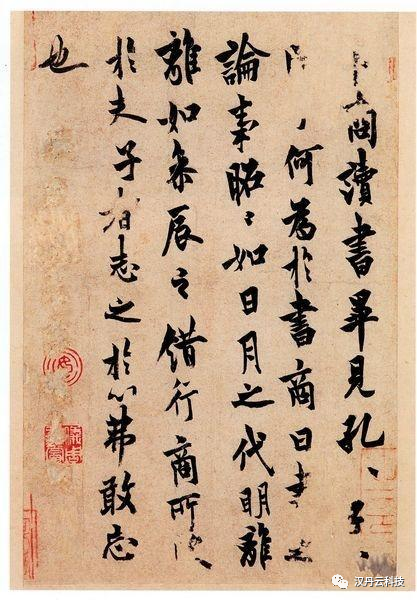 卜商讀書畢見孔〻子〻
問〻何為於書商曰書之
論事昭〻如日月之代明離
離如參辰之錯行商所受
於夫子者志之於心弗敢忘
也
汉丹云科技